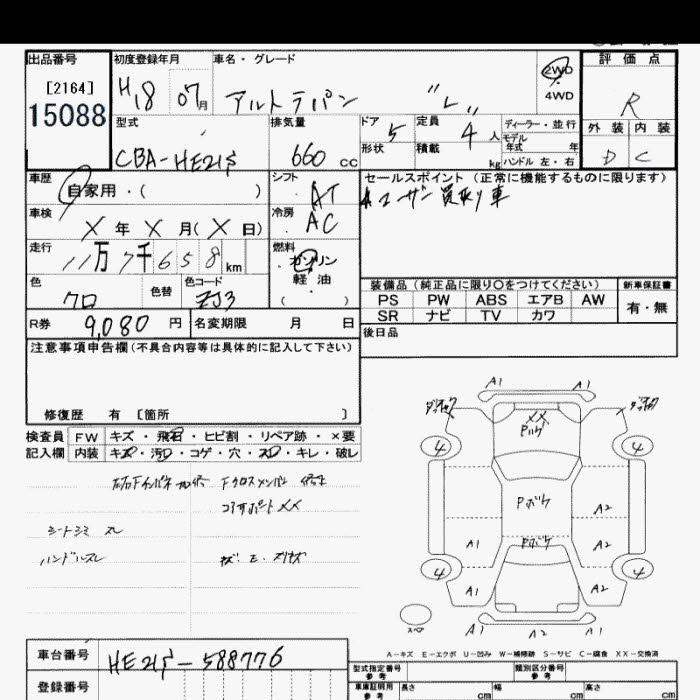 出品番号 初度登録年月 車名・グレード 評価点
[2164] H18 07月 アルトラパン "L" 2WD 4WD R
15088 型式 排気量 ドア 5 定員 4 人 ディーラー・並行 外装 内装
CBA-HE21S 660 cc 形状 積載 kg モデル年式 年 D C
ハンドル 左・右
車歴 自家用・( ) シフト AT セールスポイント (正常に機能するものに限ります)
ユーザー買取り車
車検 X 年 X 月( X 日) 冷房 AC
走行 11万7千658km 燃料 ガソリン
軽油
( )
色 クロ 色替 色コード ZJ3
装備品 (純正品に限り〇をつけてください) 新車保証書
PS PW ABS エアB AW 有・無
SR ナビ TV カワ
R券 9,080 円 名変期限 月 日 後日品
注意事項申告欄(不具合内容等は具体的に記入して下さい)
修復歴 有 [箇所 ]
検査員 FW キズ・飛石・ヒビ割・リペア跡・×要
記入欄 内装 キズ・汚レ・コゲ・穴・スレ・キレ・破レ
Fクロスメンバー
コアサポートXX
シートシミ スレ
ハンドルスレ
キズ・E・スリキズ
A1 A1
XX
Pハゲ
4 4
Pボケ A2
Pボケ
A1 A2
4 4
A1 A2
スペア
A1 A2 A1
A-キズ E-エクボ U-凹み W-補修跡 S-サビ C-腐食 XX-交換済
車台番号 HE21S-588776
型式指定番号 参考 類別区分番号 参考
登録番号 車庫証明用 参考 長さ cm 幅 cm 高さ cm